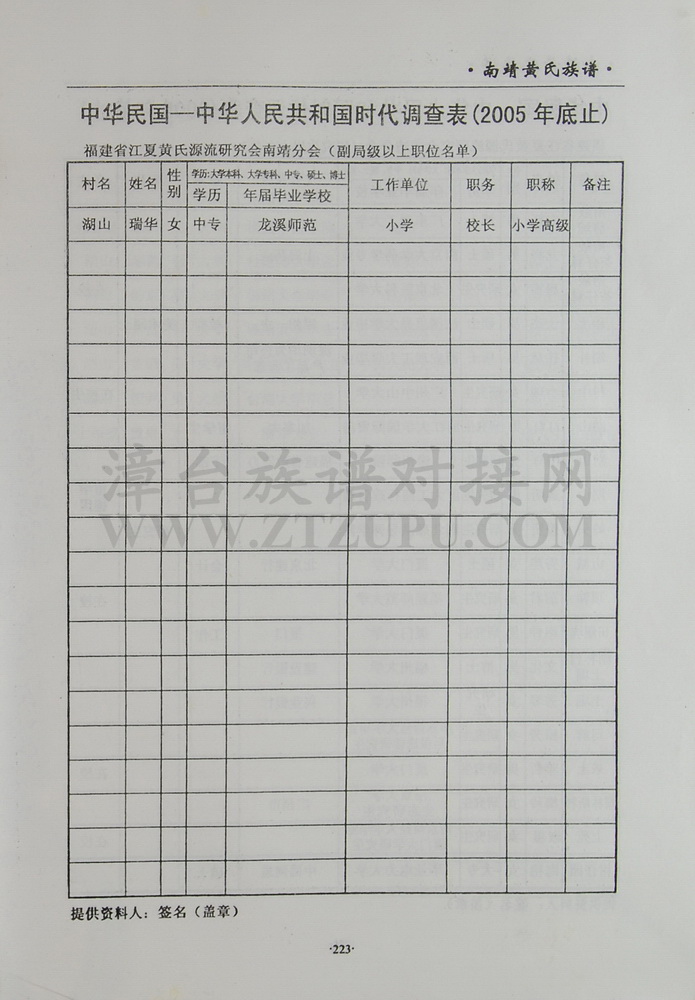 ·南靖黄氏族谱·
中华民国—中华人民共和国时代调查表(2005年底止)
福建省江夏黄氏源流研究会南靖分会（副局级以上职位名单）
村名 姓名 性别 学历:大学本科、大学专科、中专、硕士、博士 工作单位 职务 职称 备注
学历 年届毕业学校
湖山 瑞华 女 中专 龙溪师范 小学 校长 小学高级
漳台族谱对接网
WWW.ZTZUPU.COM
提供资料人：签名（盖章）
·223·